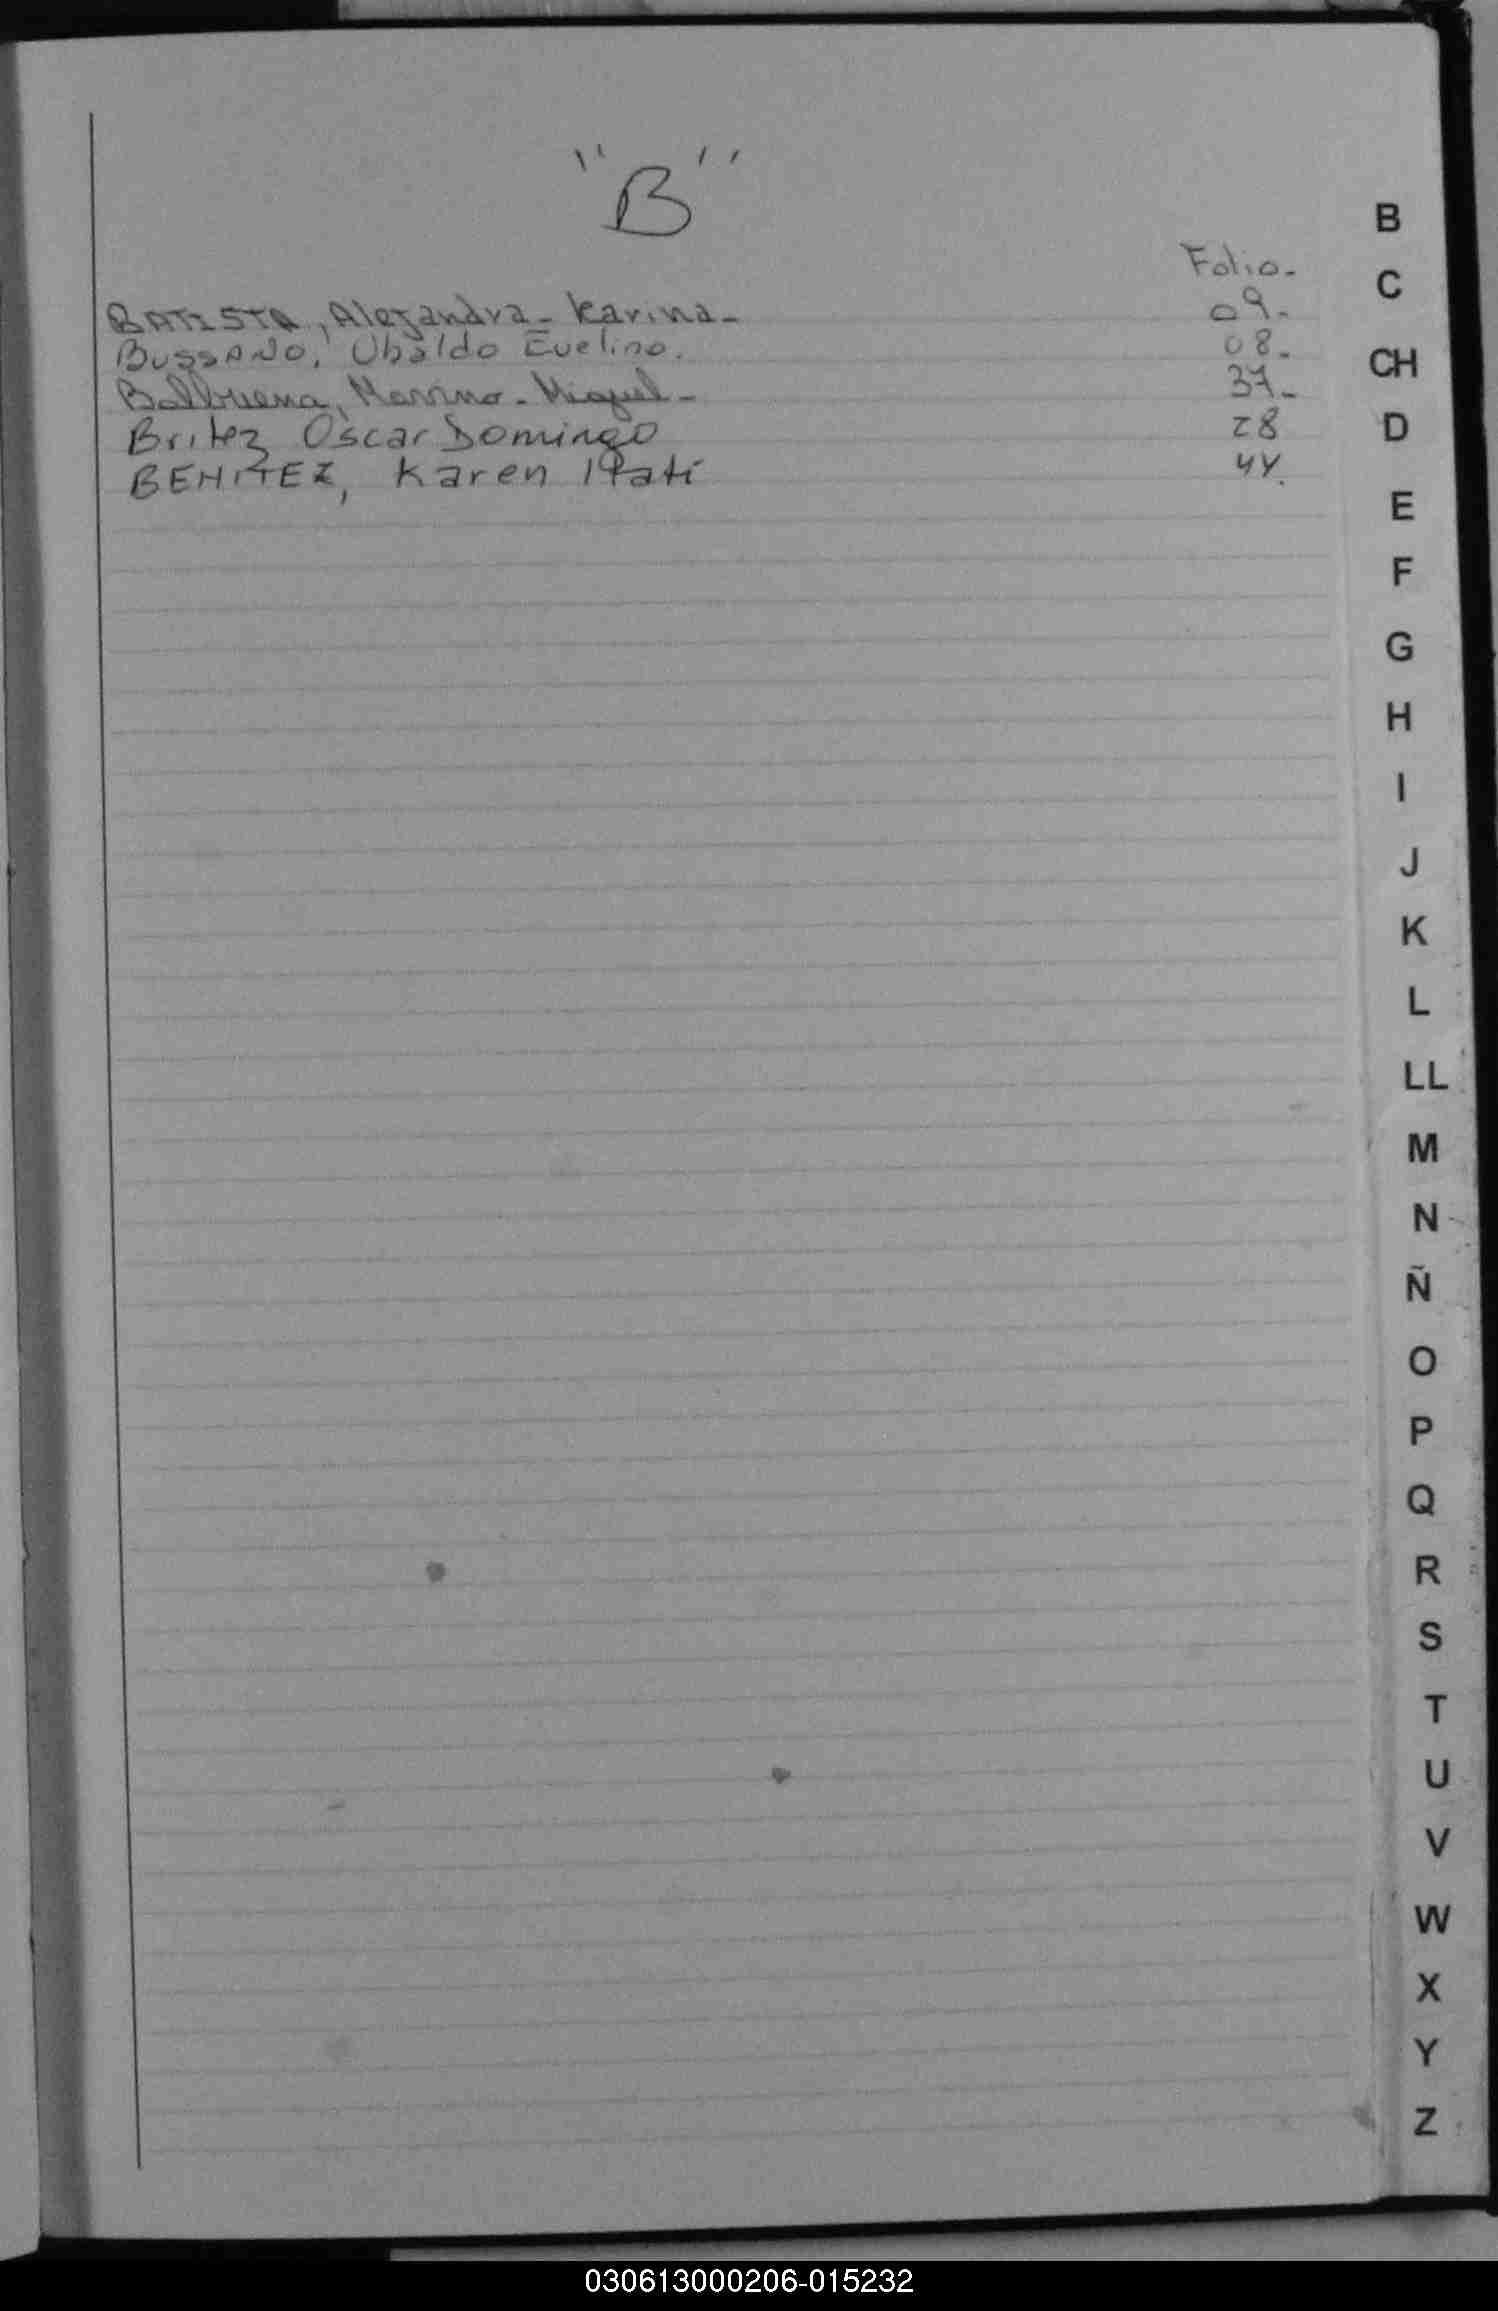 "B"
Folio-
BATISTA, Alejandra- Karina- 09-
BussANO, Ubaldo Evelino. 08-
Balbuena, Marino- Miguel- 37-
Britez Oscar Domingo 28
BENITEZ, Karen Itati 44.
B
C
CH
D
E
F
G
H
I
J
K
L
LL
M
N
Ñ
O
P
Q
R
S
T
U
V
W
X
Y
Z
030613000206-015232